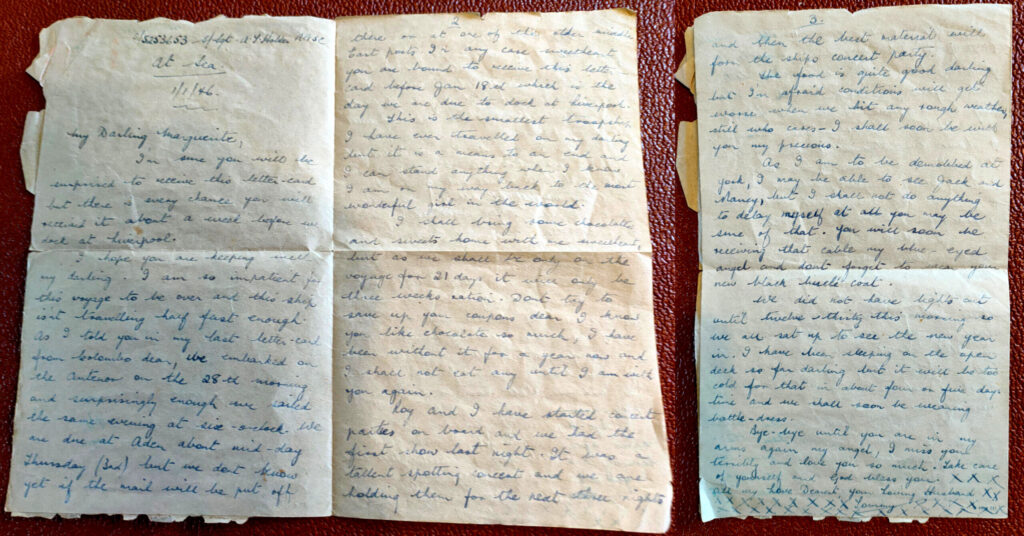 S/5253653 - S/Sgt. A S Holden RASC
At Sea.
1/1/46.
My Darling Marguerite,
I'm sure you will be
surprised to receive this letter-card
but there is every chance you will
receive it about a week before we
dock at Liverpool.
I hope you are keeping well
my darling I am so impatient for
this voyage to be over and this ship
isn't travelling half fast enough.
As I told you in my last letter-card
from Colombo dear, we embarked on
the Antenor on the 28th morning
and surprisingly enough we sailed
the same evening at six-o-clock. We
are due at Aden about mid-day
Thursday (3rd) but we dont know
yet if the mail will be put off
2
there or at one of the other middle
East posts. In any case sweetheart
you are bound to receive this letter-
card before Jan 18th which is the
day we are due to dock at Liverpool.
This is the smallest troopship
I have ever travelled on my darling
but it is a means to an end and
I can stand anything when I know
I am on my way back to the most
wonderful girl in the world.
I shall bring some chocolate
and sweets home with me sweetheart,
but as we shall be only on the
voyage for 21 days it will only be
three weeks ration. Dont try to
save up your coupons dear I know
you like chocolate so much, I have
been without it for a year now and
I shall not eat any until I am with
you again.
Roy and I have started concert
parties on board and we had the
first show last night. It was a
tallent spotting concert and we are
holding them for the next three nights
3.
and then the best material will
form the ships concert party.
The food is quite good darling
but I'm afraid conditions will get
worse when we hit any rough weather,
still who cares - I shall soon be with
you my precious.
As I am to be demobbed at
York, I may be able to see Jack and
Nancy, but I shall not do anything
to delay myself at all you may be
sure of that. You will soon be
receiving that cable my blue-eyed
angel and dont forget to wear your
new black coat.
We did not have lights-out
until twelve-thirty this morning so
we all sat up to see the new year
in. I have been sleeping on the open
deck so far darling but it will be too
cold for that in about four or five days
time and we shall soon be wearing
battle-dress.
Bye-bye until you are in my
arms again my angel, I miss you
terribly and love you so much. Take care
of yourself and God bless you. X X X
All my love Dearest, your loving Husband X X
X X X X X X X X X X Tommy X X X X X